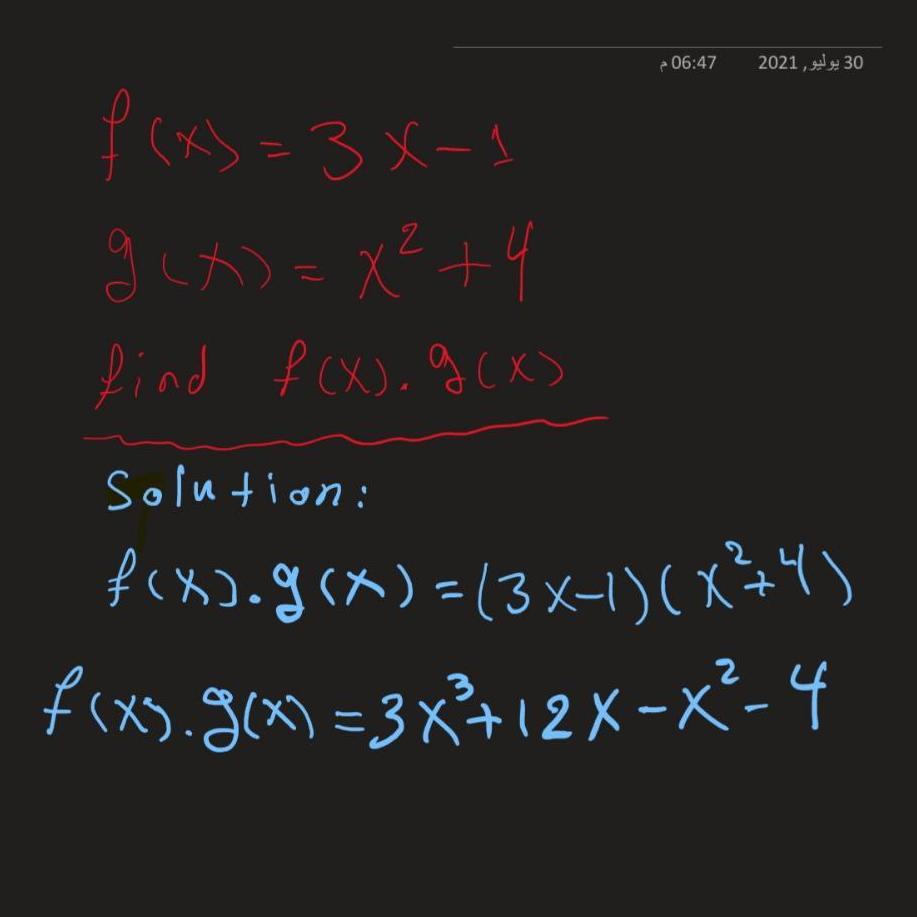 30 يوليو, 2021 06:47 م
f(x) = 3x - 1
g(x) = x² + 4
find f(x). g(x)
Solution:
f(x).g(x) = (3x-1)(x²+4)
f(x).g(x) = 3x³+12x-x²-4